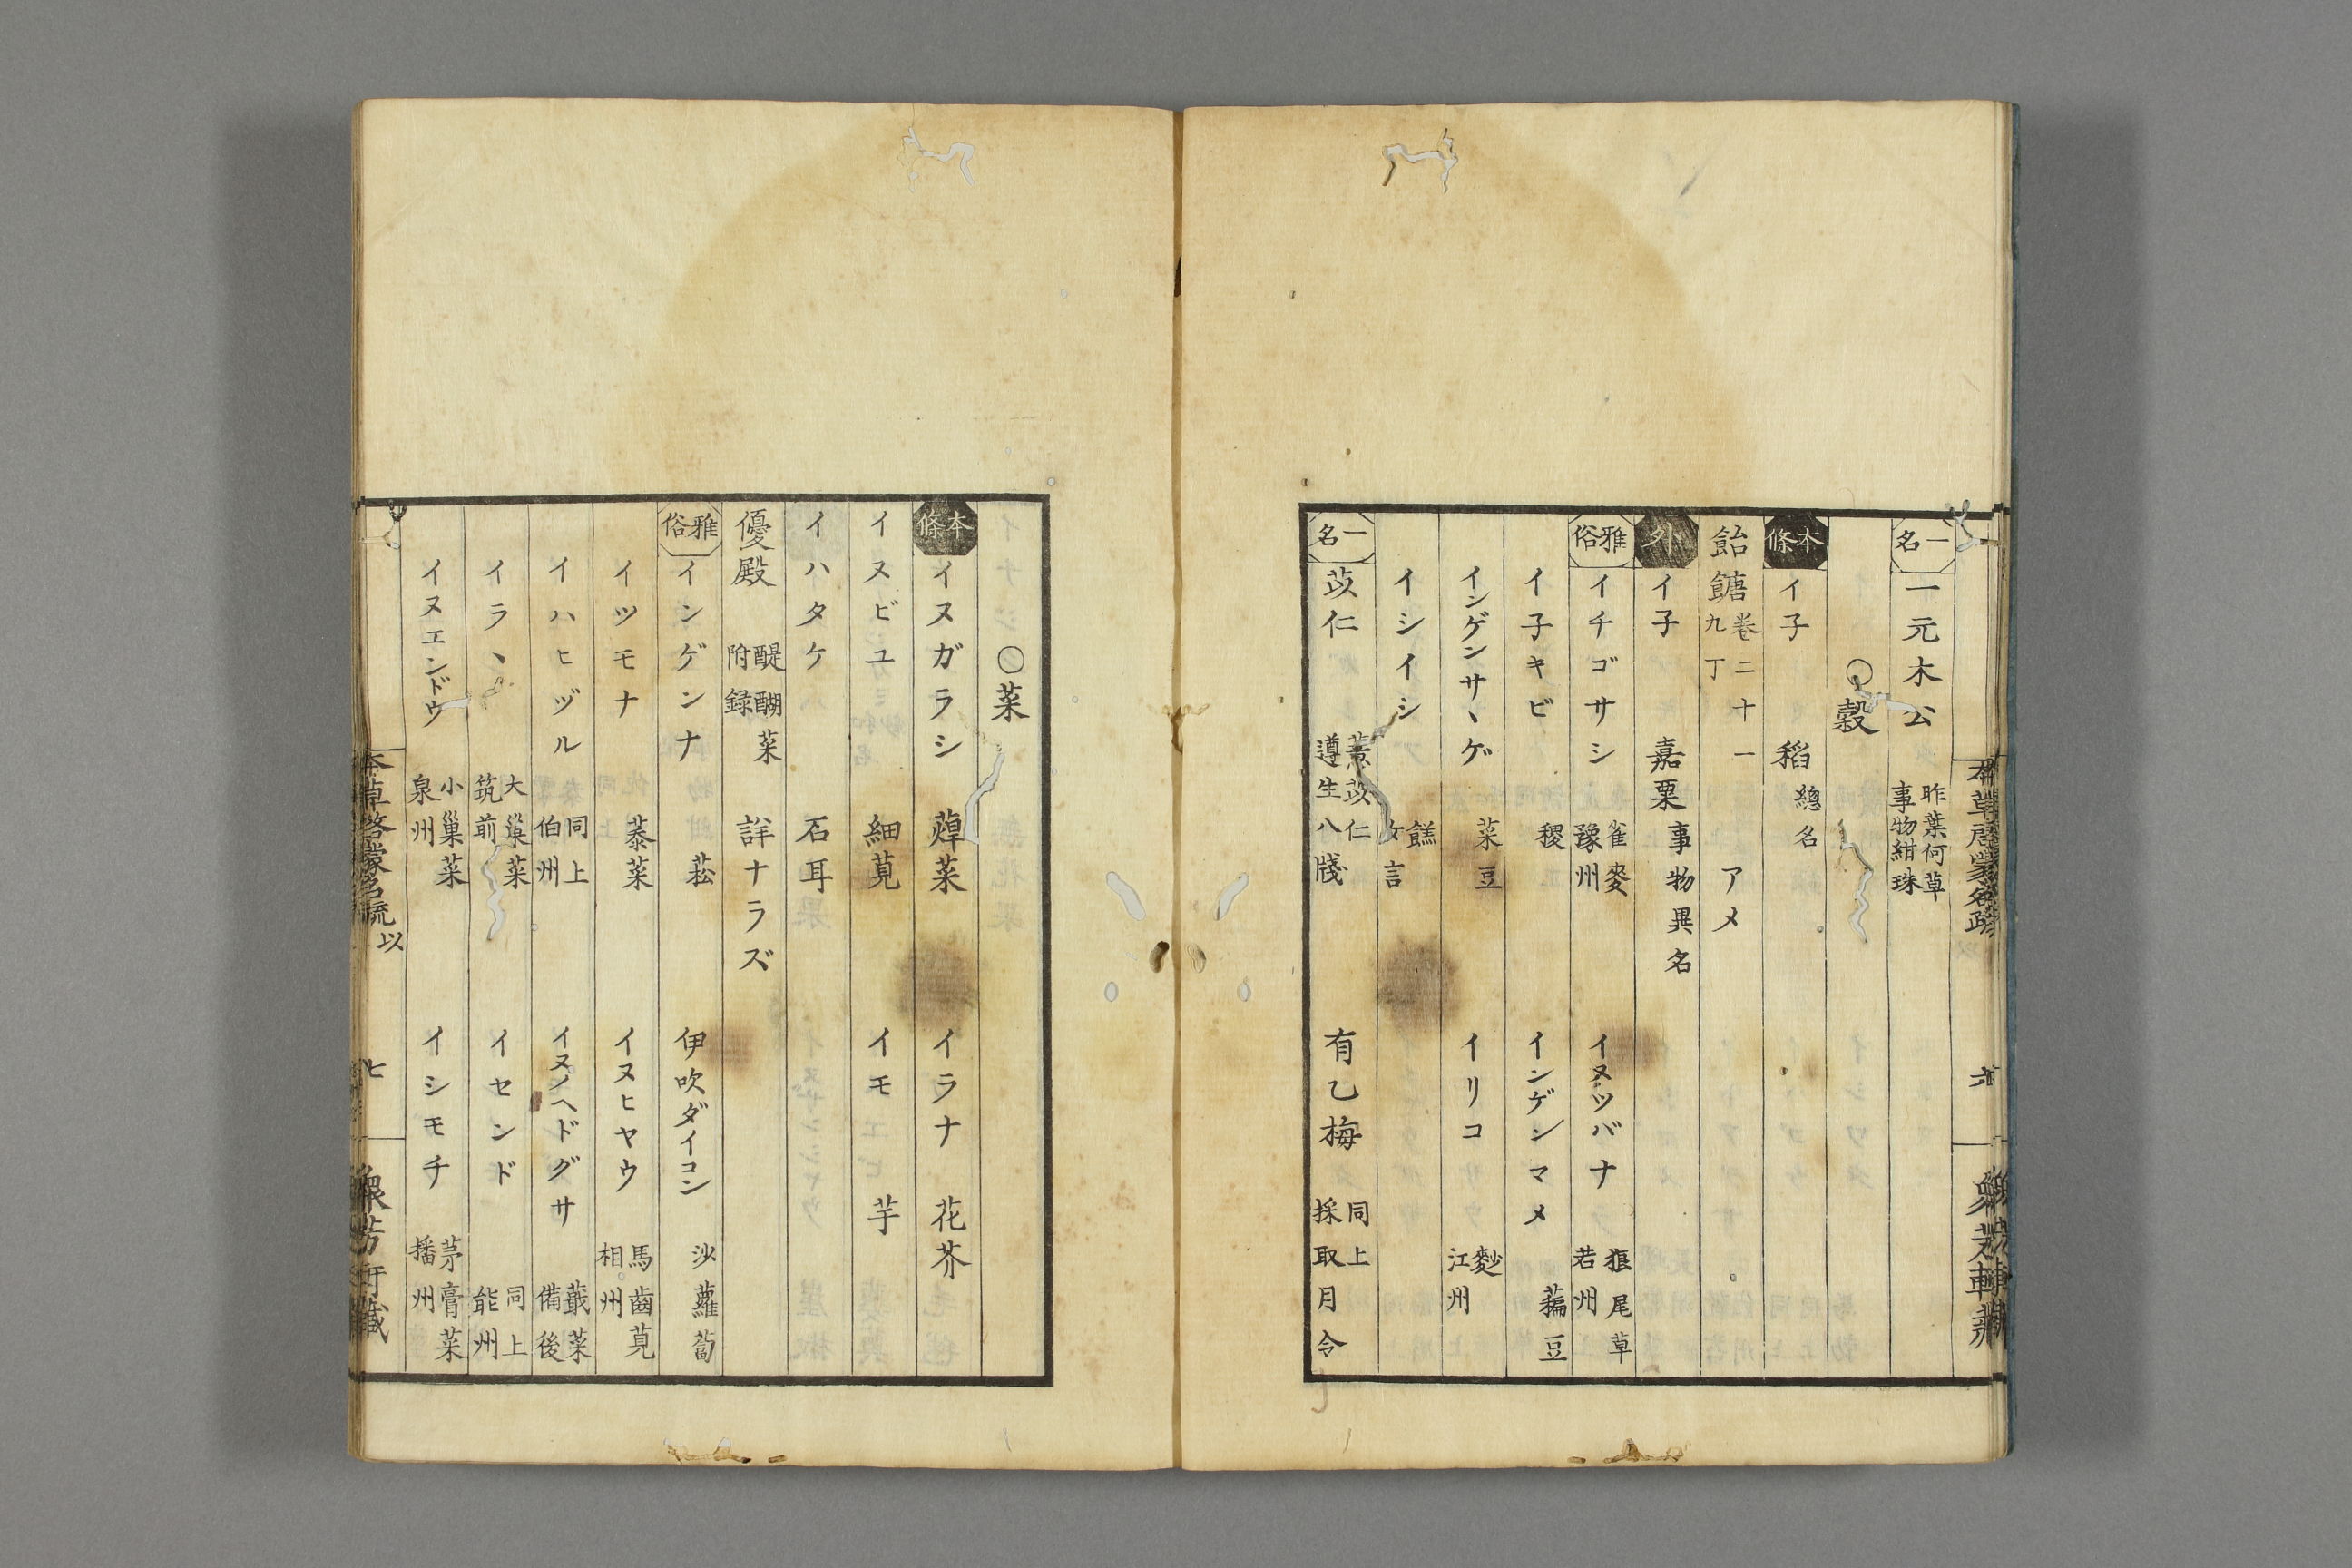 一名 一元木公 昨葉何草 事物紺珠
○穀
本條 イ子 稻 總名
飴餹 卷二十一 九丁 アメ
外 イ子 嘉栗 事物異名
雅俗 イチゴサシ 雀麥 豫州 イヌツバナ 狼尾草 若州
イ子キビ 稷 インゲンマメ 藊豆
インゲンサヽゲ 菜豆 イリコ 麨 江州
イシイシ 餻 女言
一名 苡仁 薏苡仁 遵生八牋 有乙梅 同上 採取月令
○菜
本條 イヌガラシ 蔊菜 イラナ 花芥
イヌビユ 細莧 イモ 芋
イハタケ 石耳
優殿 醍醐菜 附録 詳ナラズ
雅俗 インゲンナ 菘 伊吹ダイコン 沙蘿蔔
イツモナ 蓁菜 イヌヒヤウ 馬齒莧 相州
イハヒヅル 同上 伯州 イヌノヘドグサ 蕺菜 備後
イラヽ 大巢菜 筑前 イセンド 同上 能州
イヌエンドウ 小巢菜 泉州 イシモチ 茅膏菜 播州
本草啓蒙名疏 以 七 衆芳軒藏